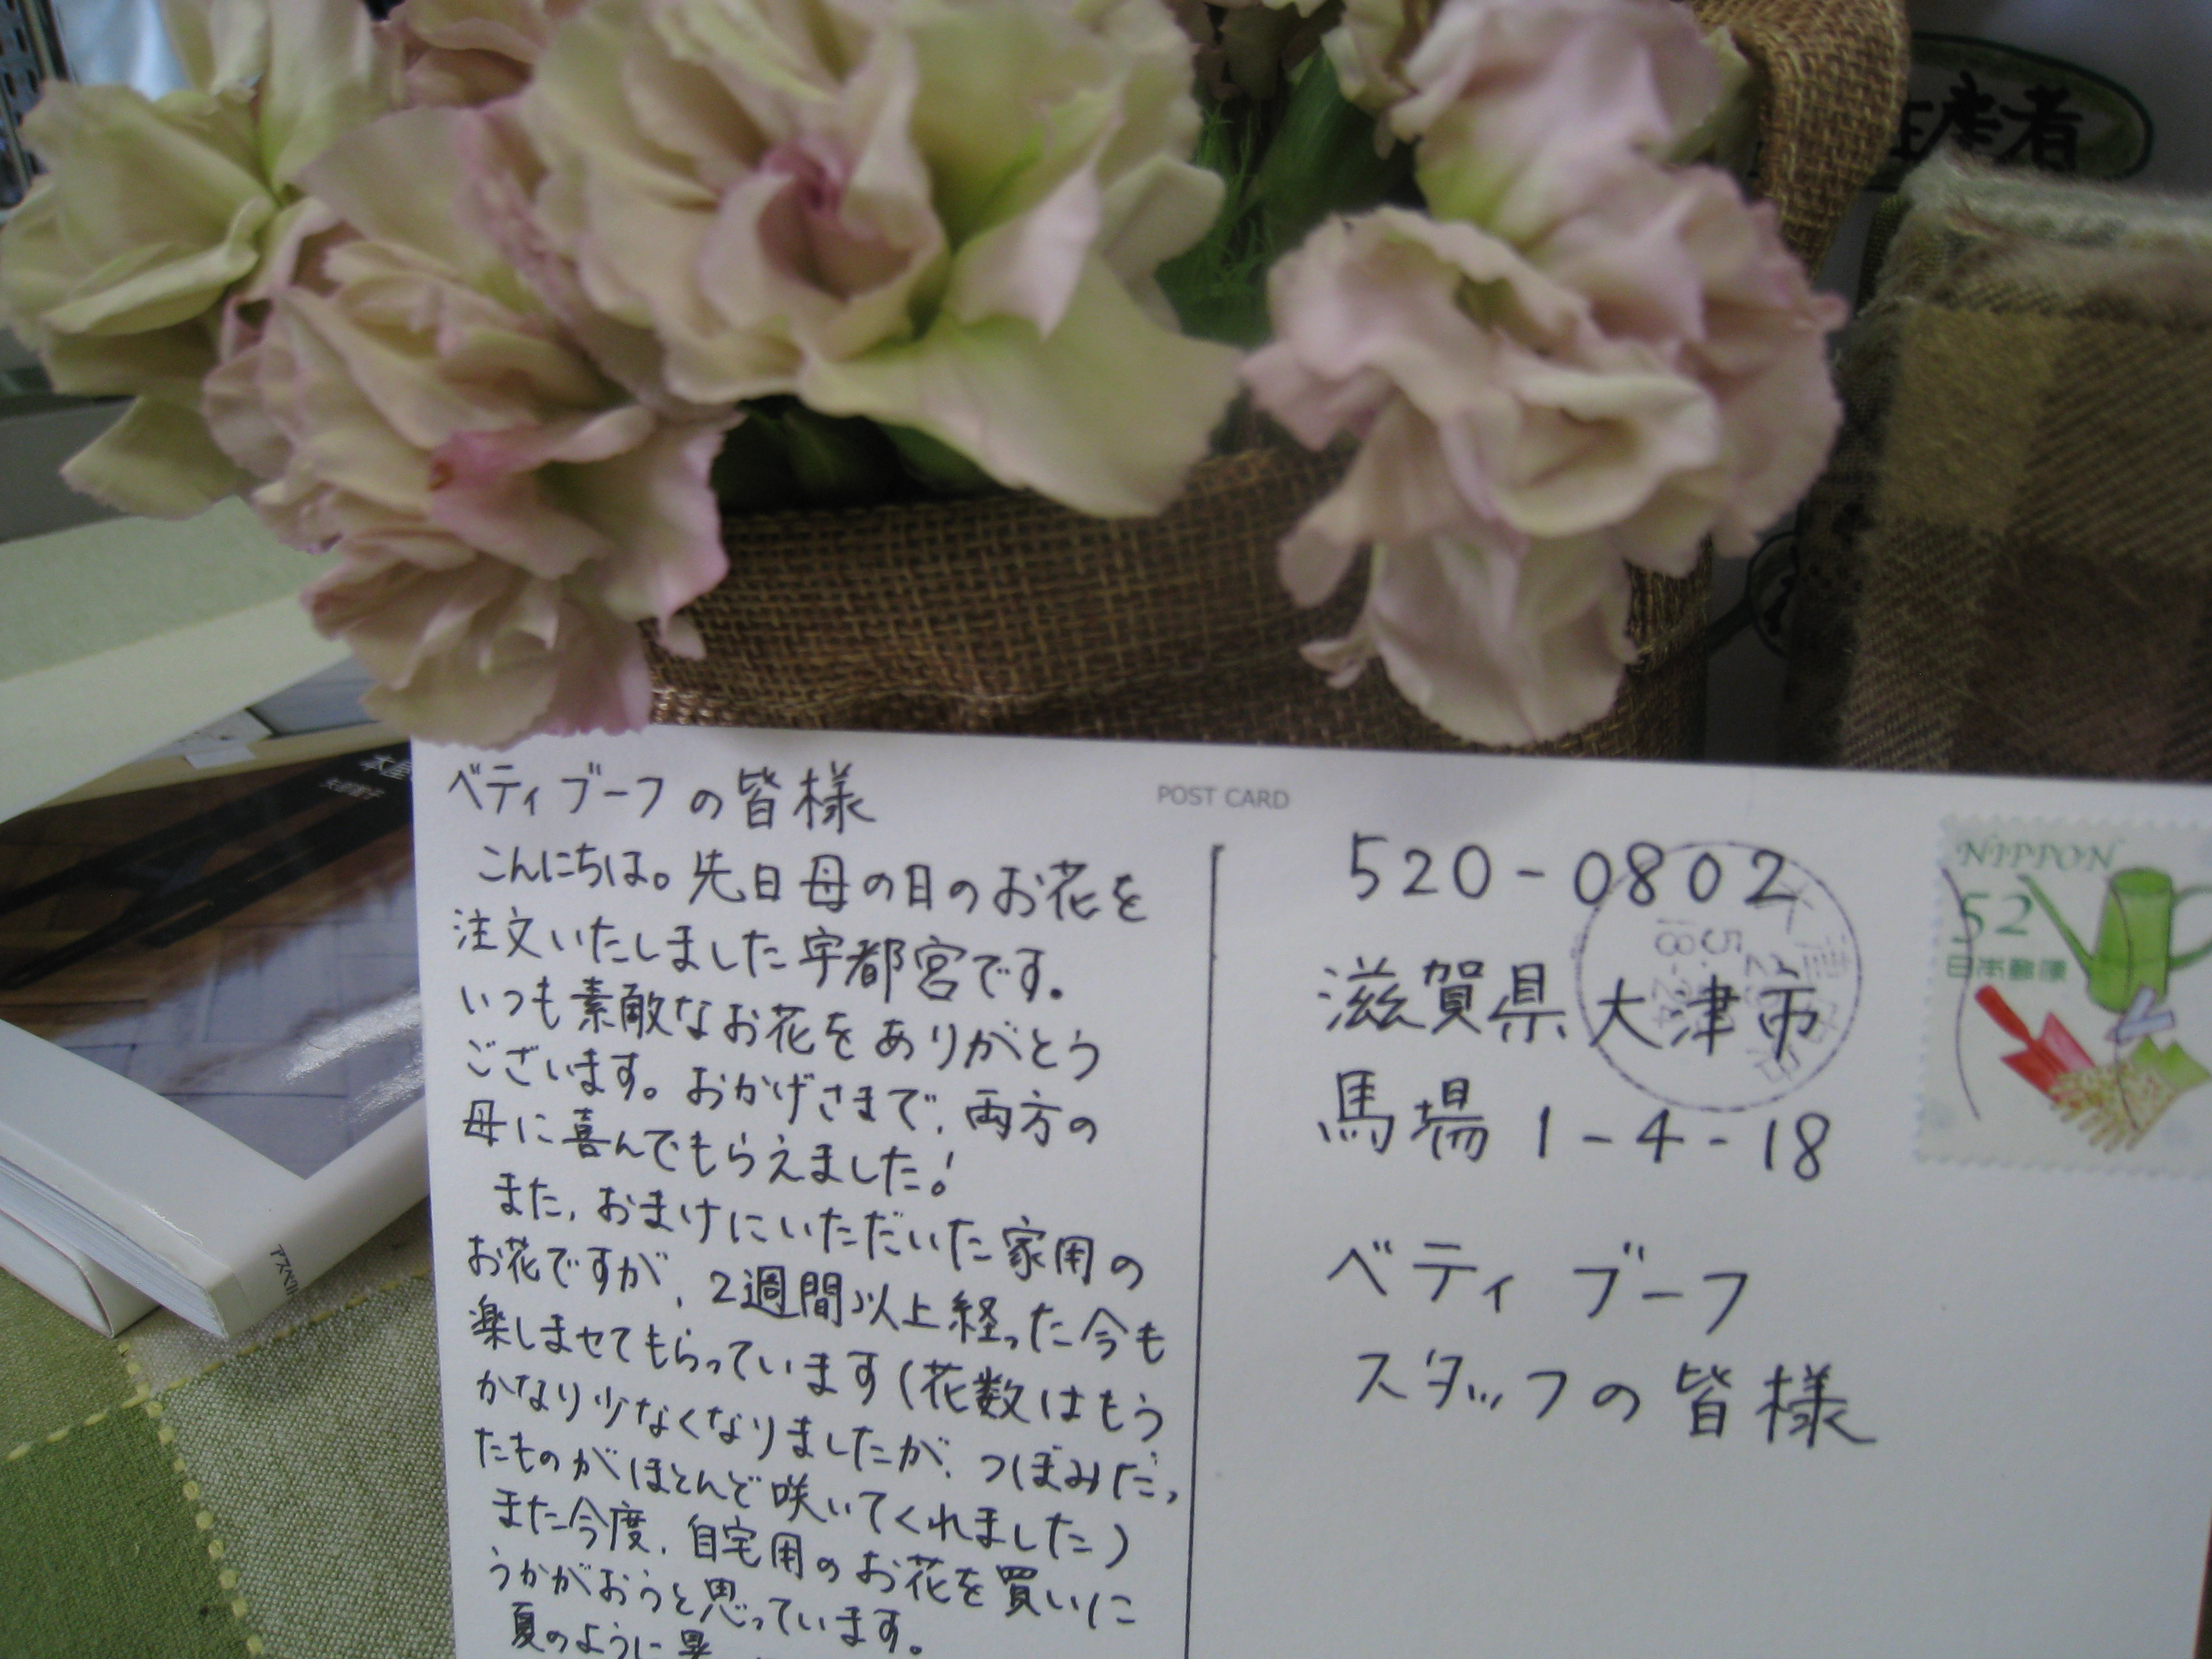 産者
ベティブーフの皆様
こんにちは。先日母の日のお花を
注文いたしました宇都宮です。
いつも素敵なお花をありがとう
ございます。おかげさまで、両方の
母に喜んでもらえました!
また、おまけにいただいた家用の
お花ですが、2週間以上経った今も
楽しませてもらっています(花数はもう
かなり少なくなりましたが、つぼみだっ
たものがほとんど咲いてくれました)
また今度、自宅用のお花を買いに
うかがおうと思っています。
夏のように
POST CARD
520-0802
滋賀県大津市
馬場1-4-18
ベティブーフ
スタッフの皆様
NIPPON
52
日本郵便
アスペクト